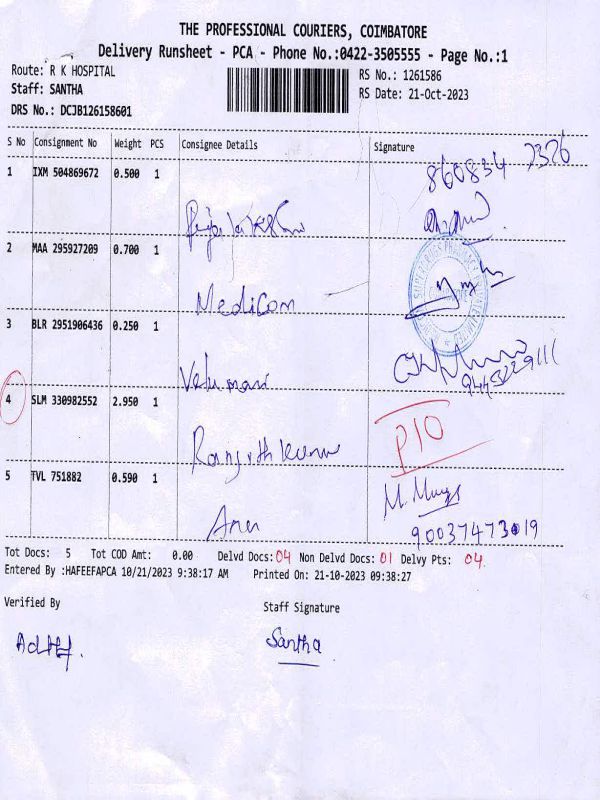 THE PROFESSIONAL COURIERS, COIMBATORE
Delivery Runsheet - PCA - Phone No.:0422-3505555 - Page No.:1
Route: R K HOSPITAL
Staff: SANTHA
DRS No.: DCJB126158601
RS No.: 1261586
RS Date: 21-Oct-2023
S No Consignment No Weight PCS Consignee Details Signature
1 IXM 504869672 0.500 1
860834 7326
2 MAA 295927209 0.700 1
Medicom
3 BLR 2951906436 0.250 1
Velumani
4 SLM 330982552 2.950 1
Ranjith Kumar
P10
5 TVL 751882 0.590 1
M. Muugs
90037473019
Tot Docs: 5 Tot COD Amt: 0.00 Delvd Docs: 04 Non Delvd Docs: 01 Delvy Pts: 04
Entered By :HAFEEFAPCA 10/21/2023 9:38:17 AM Printed On: 21-10-2023 09:38:27
Verified By Staff Signature
Santha